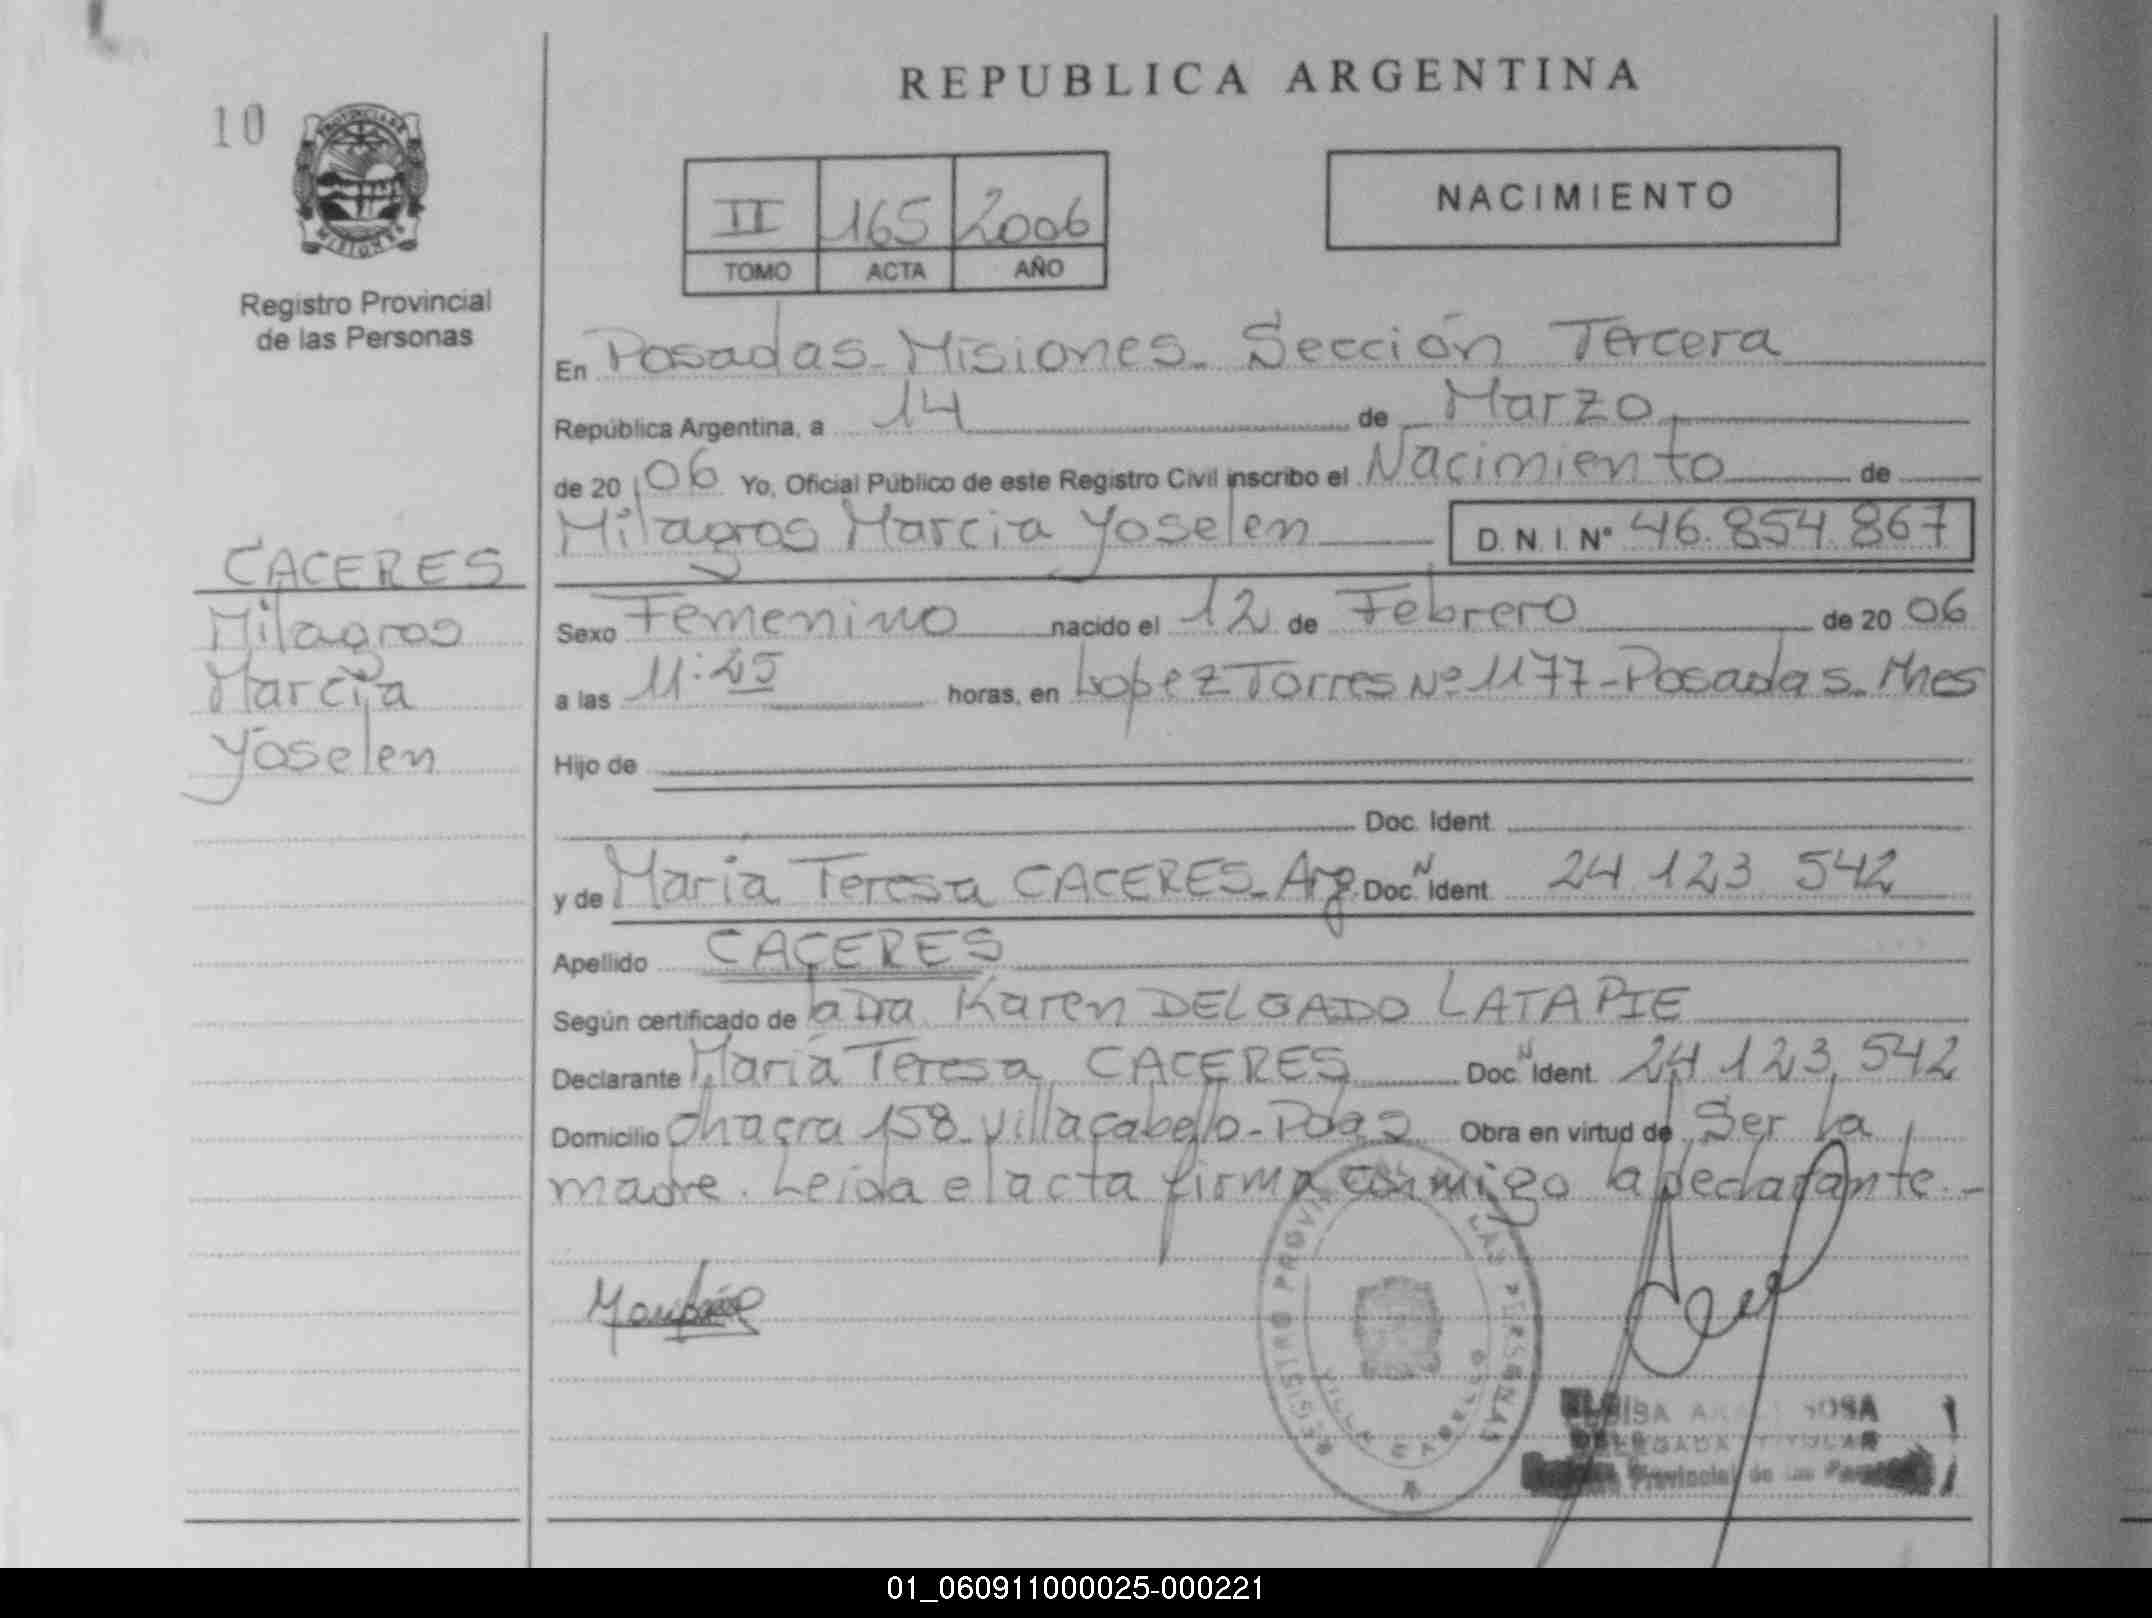 REPUBLICA ARGENTINA
10
PROVINCIA DE
MISIONES
Registro Provincial
de las Personas
NACIMIENTO
II 165 2006
TOMO ACTA AÑO
En Posadas - Misiones - Sección Tercera
República Argentina, a 14 de Marzo
de 20 06 Yo, Oficial Público de este Registro Civil inscribo el Nacimiento de
Milagros Marcia Yoselen D. N. I. N° 46.854.867
CACERES
Milagros
Marcia
Yoselen
Sexo Femenino nacido el 12 de Febrero de 20 06
a las 11:45 horas, en Lopez Torres Nº 1177 - Posadas - Mnes
Hijo de
Doc. Ident.
y de Maria Teresa CACERES - Arg. Doc. N Ident. 24 123 542
Apellido CACERES
Según certificado de la Dra. Karen DELGADO LATAPIE
Declarante Maria Teresa CACERES Doc. N Ident. 24 123 542
Domicilio Chacra 158 - Villa Cabello - Pdas Obra en virtud de Ser la
madre. Leida el acta firma conmigo la declarante. -
REGISTRO PROVINCIAL DE LAS PERSONAS
VILLA CABELLO
SOSA
DELEGADA TITULAR
Provincial de las
01_060911000025-000221